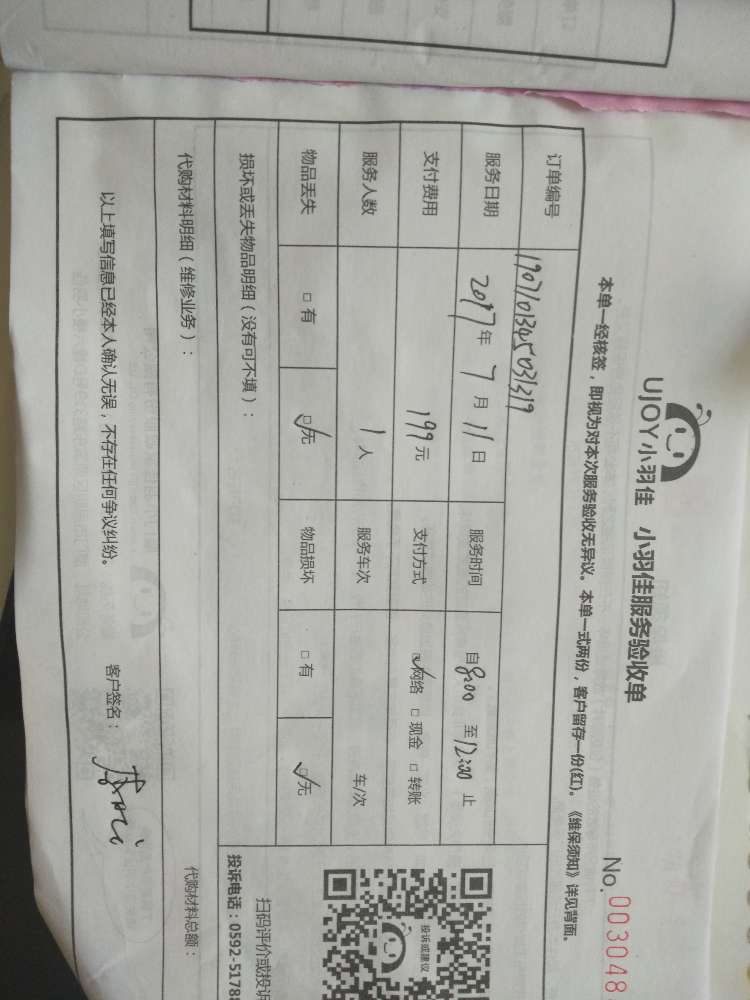 UJOY小羽佳 小羽佳服务验收单
No.003048
本单一经核签，即视为对本次服务验收无异议。本单一式两份，客户留存一份(红)。《维保须知》详见背面。
订单编号 1907101345031319
服务日期 2017年 7月 11日 服务时间 自8:00 至12:00 止
支付费用 199元 支付方式 ☑网络 □现金 □转账
服务人数 1人 服务车次 车/次
物品丢失 □有 ☑无 物品损坏 □有 ☑无
损坏或丢失物品明细（没有可不填）：
代购材料明细（维修业务）： 代购材料总额：
以上填写信息已经本人确认无误，不存在任何争议纠纷。 客户签名：
投诉或建议
扫码评价或投诉
投诉电话：0592-5178